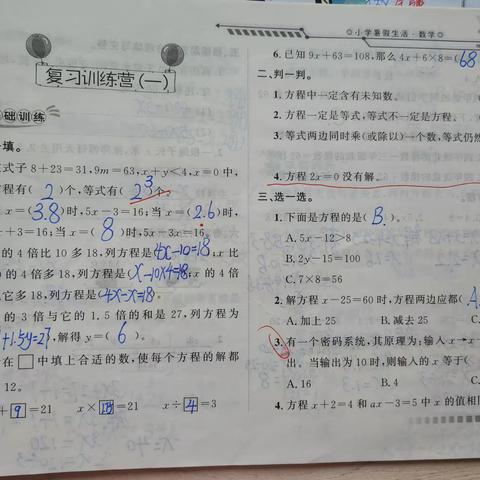 复习训练营(一)
础训练
填。
式子 8+23=31,9m=63,x+y<4,x=0 中,
程有( 2 )个,等式有( 2 3 )个。
x=(3.8)时,5x-3=16;当 x=(2.6)时,
+3=16;当 x=( 8 )时,5x-3x=16。
的 4 倍比 10 多 18,列方程是(4x-10=18);x 比
的 4 倍多 18,列方程是(x-10×4=18);x 的 4 倍
它多 18,列方程是(4x-x=18)。
的 3 倍与它的 1.5 倍的和是 27,列方程为
+1.5y=27,解得 y=( 6 )。
在□中填上合适的数,使每个方程的解都
12。
+9=21 x× =21 x÷4=3
◎小学暑假生活·数学◎
6. 已知 9x+63=108,那么 4x+6×8=(68
二、判一判。
1. 方程中一定含有未知数。
2. 方程一定是等式,等式不一定是方程。(
3. 等式两边同时乘(或除以)一个数,等式仍然
4. 方程 2x=0 没有解。
三、选一选。
1. 下面是方程的是( B. )。
A. 5x-12>8
B. 2y-15=100
C. 7×8=56
2. 解方程 x-25=60 时,方程两边应都( A
A. 加上 25 B. 减去 25 C.
3. 有一个密码系统,其原理为:输入 x→x
出。当输出为 10 时,则输入的 x 等于(
A. 16 B. 4 C.
4. 方程 x+2=4 和 ax-3=5 中 x 的值相同